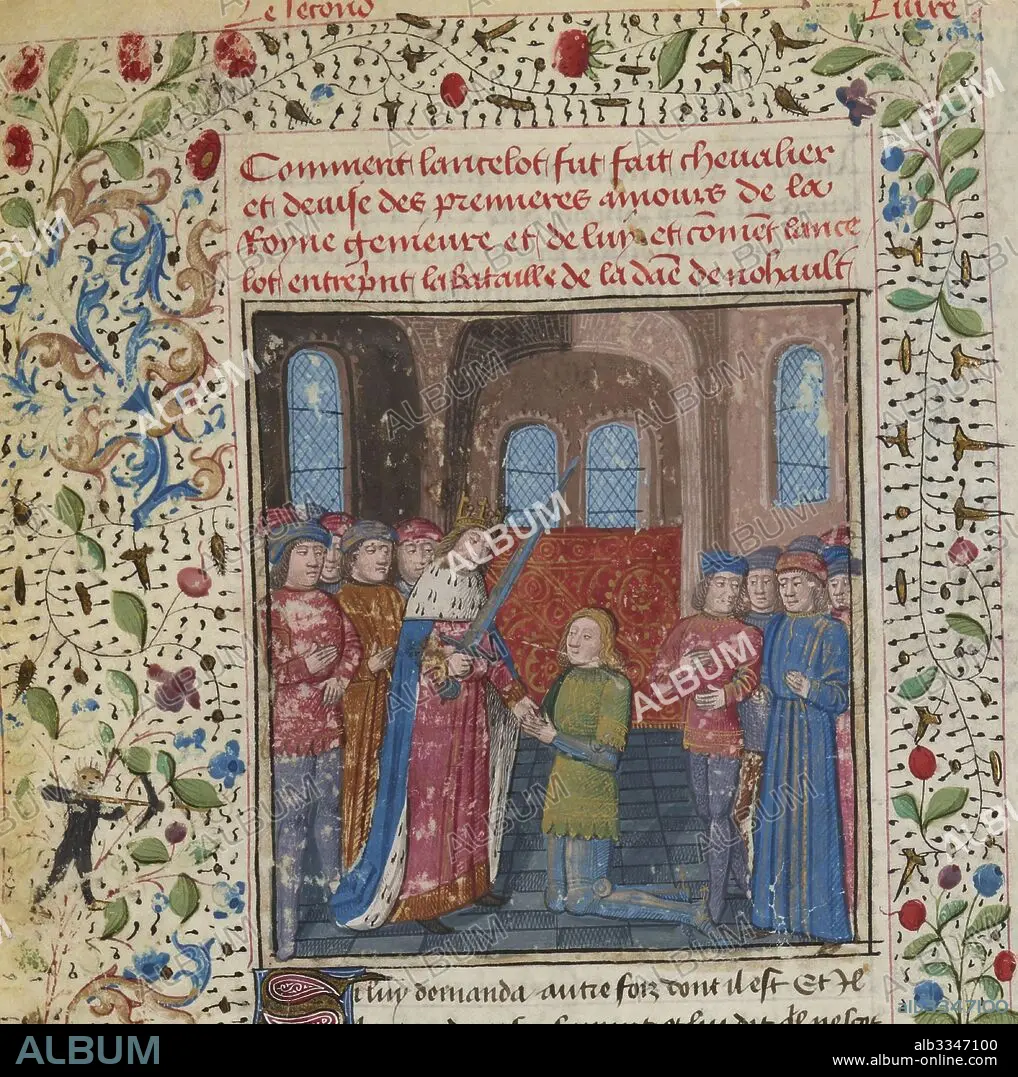 Le second Livre
Comment lancelot fut fait cheualier
et deuise des premieres amours de la
Royne genieure et de luy et cõmẽt lance
lot entreprint la bataille de la dãe de nohault
luy demanda autre foiz dont il est Et Il
ALBUM
alb3347100
www.album-online.com